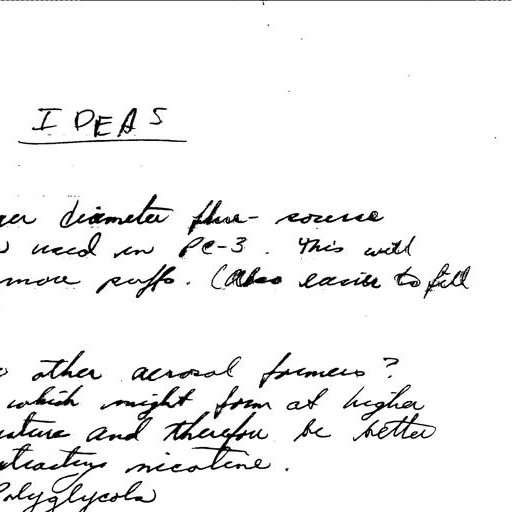 IDEAS
diameter flue- source
used in PC-3. This will
more puffs. (Also easier to fill
other aerosol formers?
which might form at higher
and therefore be better
nicotine.
Polyglycols